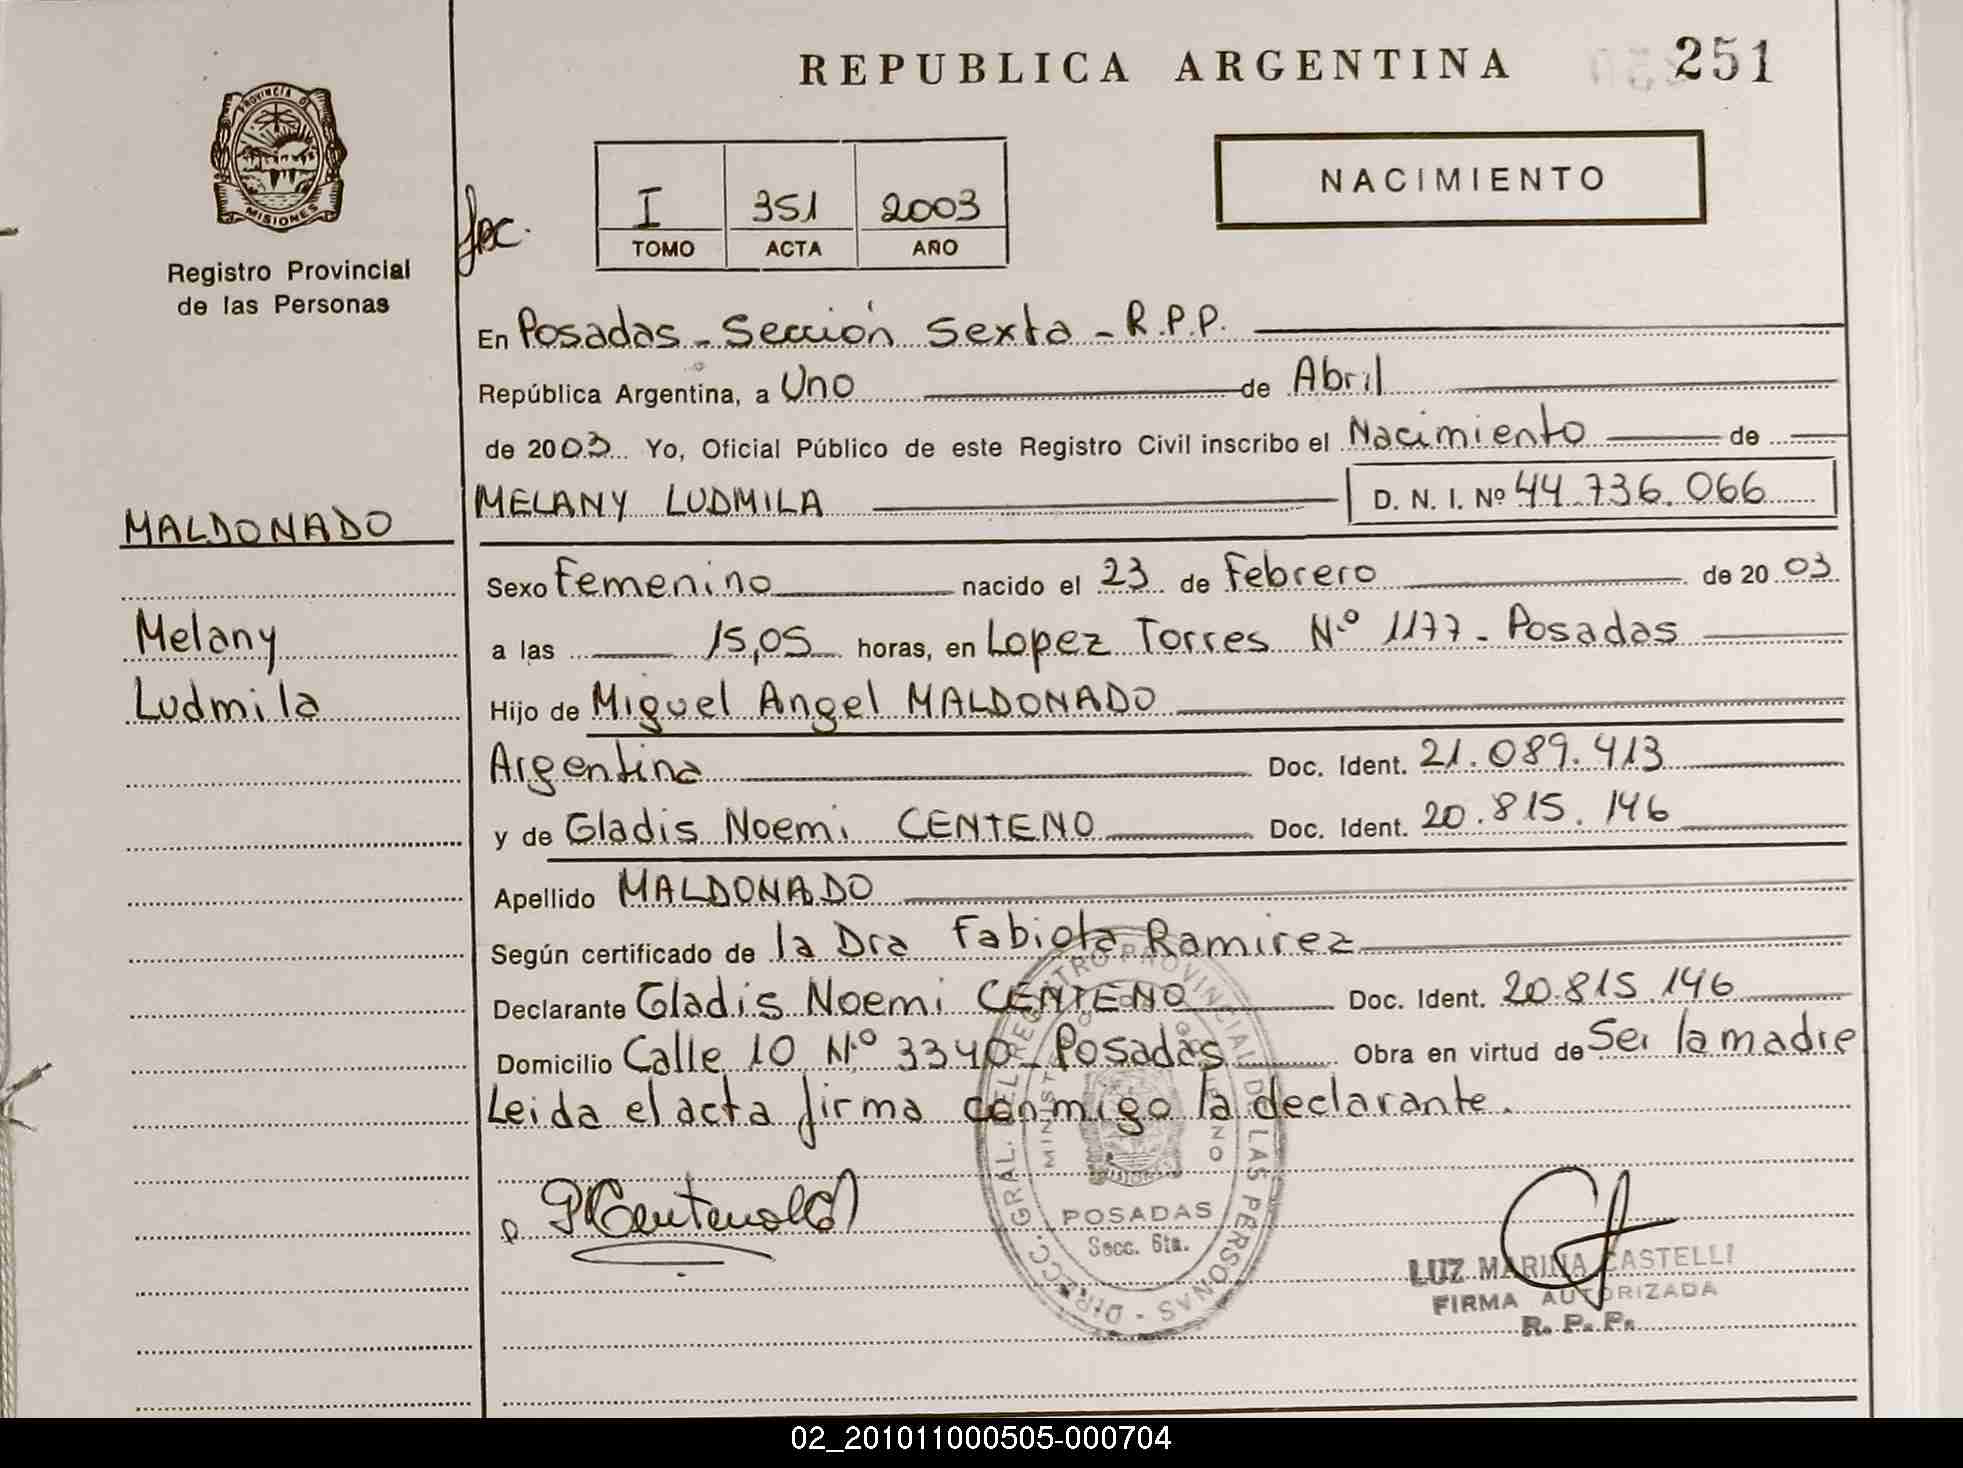 REPUBLICA ARGENTINA
251
PROVINCIA DE
MISIONES
Registro Provincial
de las Personas
I 351 2003
TOMO ACTA AÑO
NACIMIENTO
En Posadas - Sección Sexta - R.P.P.
República Argentina, a Uno de Abril
de 2003 Yo, Oficial Público de este Registro Civil inscribo el Nacimiento de
MELANY LUDMILA D. N. I. Nº 44.736.066
MALDONADO
Sexo Femenino nacido el 23 de Febrero de 2003
Melany
a las 15,05 horas, en Lopez Torres Nº 1177 - Posadas
Ludmila
Hijo de Miguel Angel MALDONADO
Argentina Doc. Ident. 21.089.413
y de Gladis Noemi CENTENO Doc. Ident. 20.815.146
Apellido MALDONADO
Según certificado de la Dra Fabiola Ramirez
Declarante Gladis Noemi CENTENO Doc. Ident. 20.815.146
Domicilio Calle 10 Nº 3340 - Posadas Obra en virtud de Ser la madre
Leida el acta firma conmigo la declarante.
DIRECC. GRAL. DEL REGISTRO PROVINCIAL DE LAS PERSONAS
POSADAS
Secc. 6ta.
LUZ MARINA CASTELLI
FIRMA AUTORIZADA
R. P. P.
02_201011000505-000704